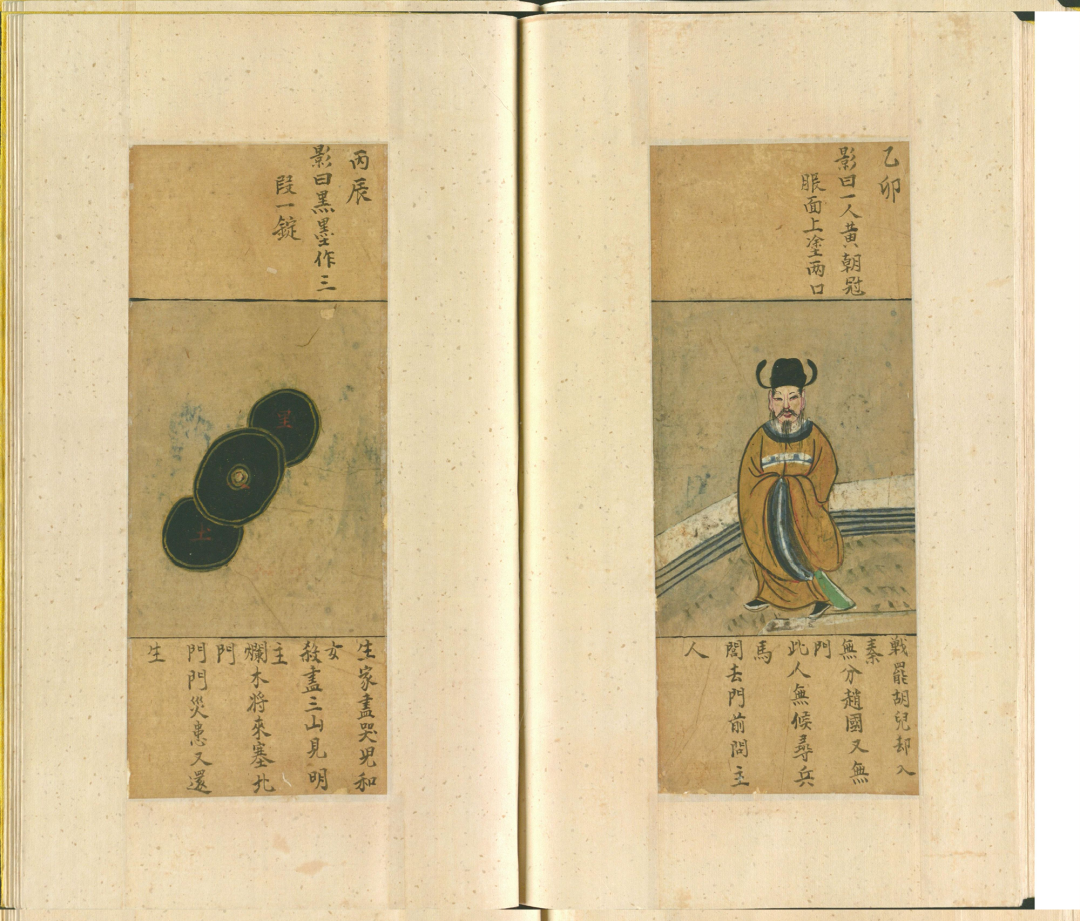 乙卯
影曰一人黃朝冠
服面上塗兩口
戰罷胡兒却入
秦
無分趙國又無
門
此人無候尋兵
馬
閣去門前問主
人
丙辰
影曰黑墨作三
段一錠
星
土
生家盡哭兒和
女
殺盡三山見明
主
爛木将來塞北
門
門門災患又還
生